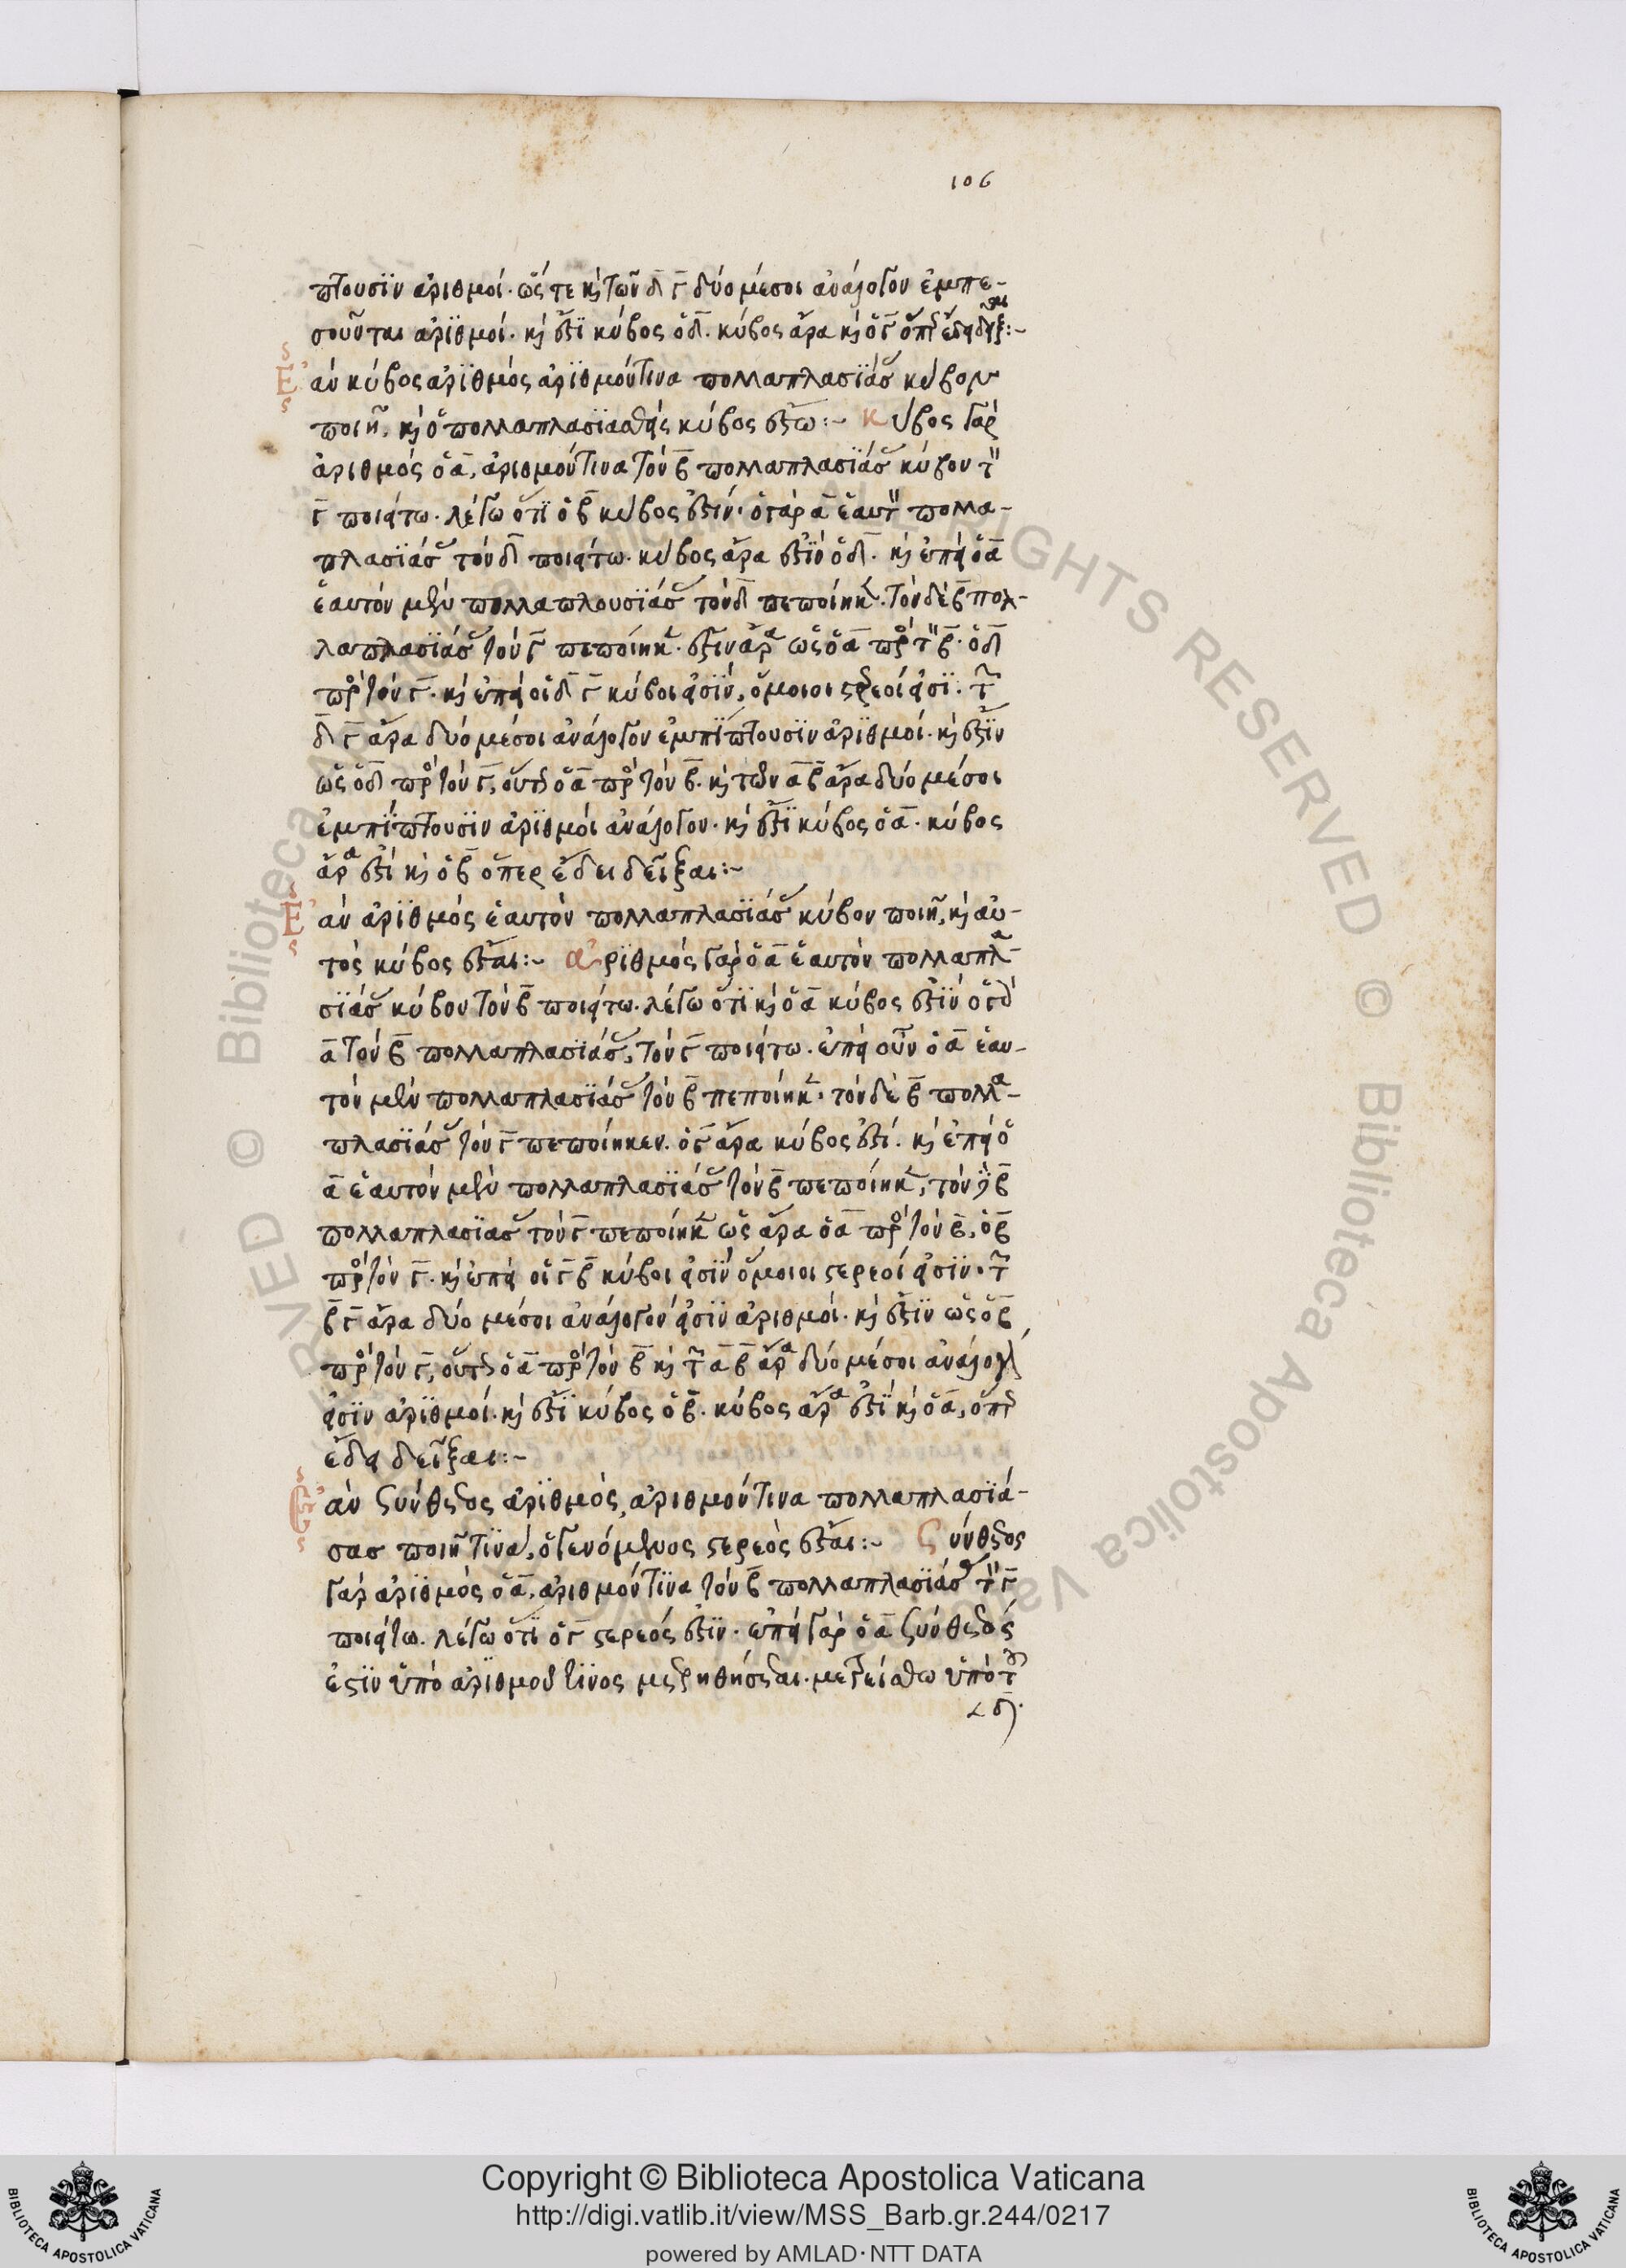 106
πτουσϊν ἀριθμοί. ὥστε κ̀ τῶν δ̅ γ̅ δύο μέσοι ἀνάλογον ἐμπε-
σοῦνται ἀρϊθμοί. κ̀ ἔστϊ κύβος ὁ δ̅. κύβος ἄρα κ̀ ὁ γ̅ ὅπερ ἔδει δεῖξαι:~
Ἐὰν κύβος ἀρϊθμός ἀρϊθμόν τινα πολλαπλασϊάσας κύβον
ποιῇ, κ̀ ὁ πολλαπλασϊασθείς κύβος ἔστω:~ Κύβος γάρ
ἀριθμός ὁ α̅, ἀριθμόν τινα τόν β̅ πολλαπλασϊάσας κύβον τὸν
γ̅ ποιείτω. λέγω ὅτϊ ὁ β̅ κύβος ἐστίν. ὁ γάρ α̅ ἑαυτὸν πολλα-
πλασϊάσας τόν δ̅ ποιείτω. κύβος ἄρα ἐστϊν ὁ δ̅. κ̀ ἐπεί ὁ α̅
ἑαυτόν μέν πολλαπλουσϊάσας τόν δ̅ πεποίηκεν. τόν δέ β̅ πολ-
λαπλασϊάσας τόν γ̅ πεποίηκεν. ἔστιν ἄρα ὡς ὁ α̅ πρός τὸν β̅. ὁ δ̅
πρός τόν γ̅. κ̀ ἐπεί οἱ δ̅ γ̅ κύβοι εἰσϊν, ὅμοιοι στερεοί εἰσϊ. τῶν
δ̅ γ̅ ἄρα δυό μέσοι ἀνάλογον ἐμπίπτουσϊν ἀρϊθμοί. κ̀ ἔστϊν
ὡς ὁ δ̅ πρός τόν γ̅, οὕτως ὁ α̅ πρός τόν β̅. κ̀ τῶν α̅ β̅ ἄρα δυό μέσοι
ἐμπίπτουσϊν ἀρϊθμόι ἀνάλογον. κ̀ ἔστϊ κύβος ὁ α̅. κύβος
ἄρα ἐστί κ̀ ὁ β̅ ὅπερ ἔδει δεῖξαι:~
Ἐὰν ἀρϊθμός ἑαυτόν πολλαπλασϊάσας κύβον ποιῇ, κ̀ αὐ-
τός κύβος ἔσται:~ ἀρϊθμός γάρ ὁ α̅ ἑαυτόν πολλαπλα-
σϊάσας κύβον τόν β̅ ποιείτω. λέγω ὅτϊ κ̀ ὁ α̅ κύβος ἐστϊν ὁ γὰρ
α̅ τόν β̅ πολλαπλασϊάσας, τόν γ̅ ποιείτω. ἐπεί οὖν ὁ α̅ ἑαυ-
τόν μέν πολλαπλασϊάσας τόν β̅ πεποίηκεν. τόν δέ β̅ πολλα-
πλασϊάσας τόν γ̅ πεποίηκεν. ὁ γ̅ ἄρα κύβος ἐστί. κ̀ ἐπεί ὁ
α̅ ἑαυτόν μέν πολλαπλασϊάσας τόν β̅ πεποίηκεν, τόν δὲ β̅
πολλαπλασϊασας τόν γ̅ πεποίηκεν ὡς ἄρα ὁ α̅ πρός τόν β̅, ὁ β̅
πρός τόν γ̅. κ̀ ἐπεί οἱ γ̅ β̅ κύβοι εἰσϊν ὅμοιοι στερεοί εἰσϊν. τῶν
β̅ γ̅ ἄρα δύο μέσοι ἀνάλογόν εἰσϊν ἀριθμοί. κ̀ ἔστϊν ὡς ὁ β̅
πρός τόν γ̅, οὕτως ὁ α̅ πρός τόν β̅ κ̀ τῶν α̅ β̅ ἄρα δύο μέσοι ἀνάλογον
εἰσϊν ἀρϊθμοί. κ̀ ἔστϊ κύβος ὁ β̅. κύβος ἄρα ἐστϊ κ̀ ὁ α̅, ὅπερ
ἔδει δεῖξαι:~
Ἐὰν σύνθετος ἀρϊθμός, ἀριθμόν τινα πολλαπλασϊά-
σασ ποιῇ τϊνα, ὁ γενόμενος στερεός ἔσται:~ Σύνθετος
γάρ ἀρϊθμός ὁ α̅, ἀριθμόν τϊνα τόν β̅ πολλαπλασϊάσας τὸν γ̅
ποιείτω. λέγω ὅτϊ ὁ γ̅ στερεός ἐστϊν. ἐπεί γάρ ὁ α̅ σύνθετός
ἐστϊν ὑπό ἀρϊθμοῦ τϊνος μετρηθήσεται. μετρείσθω ὑπό τοῦ
δ̅.
Copyright © Biblioteca Apostolica Vaticana
http://digi.vatlib.it/view/MSS_Barb.gr.244/0217
powered by AMLAD·NTT DATA